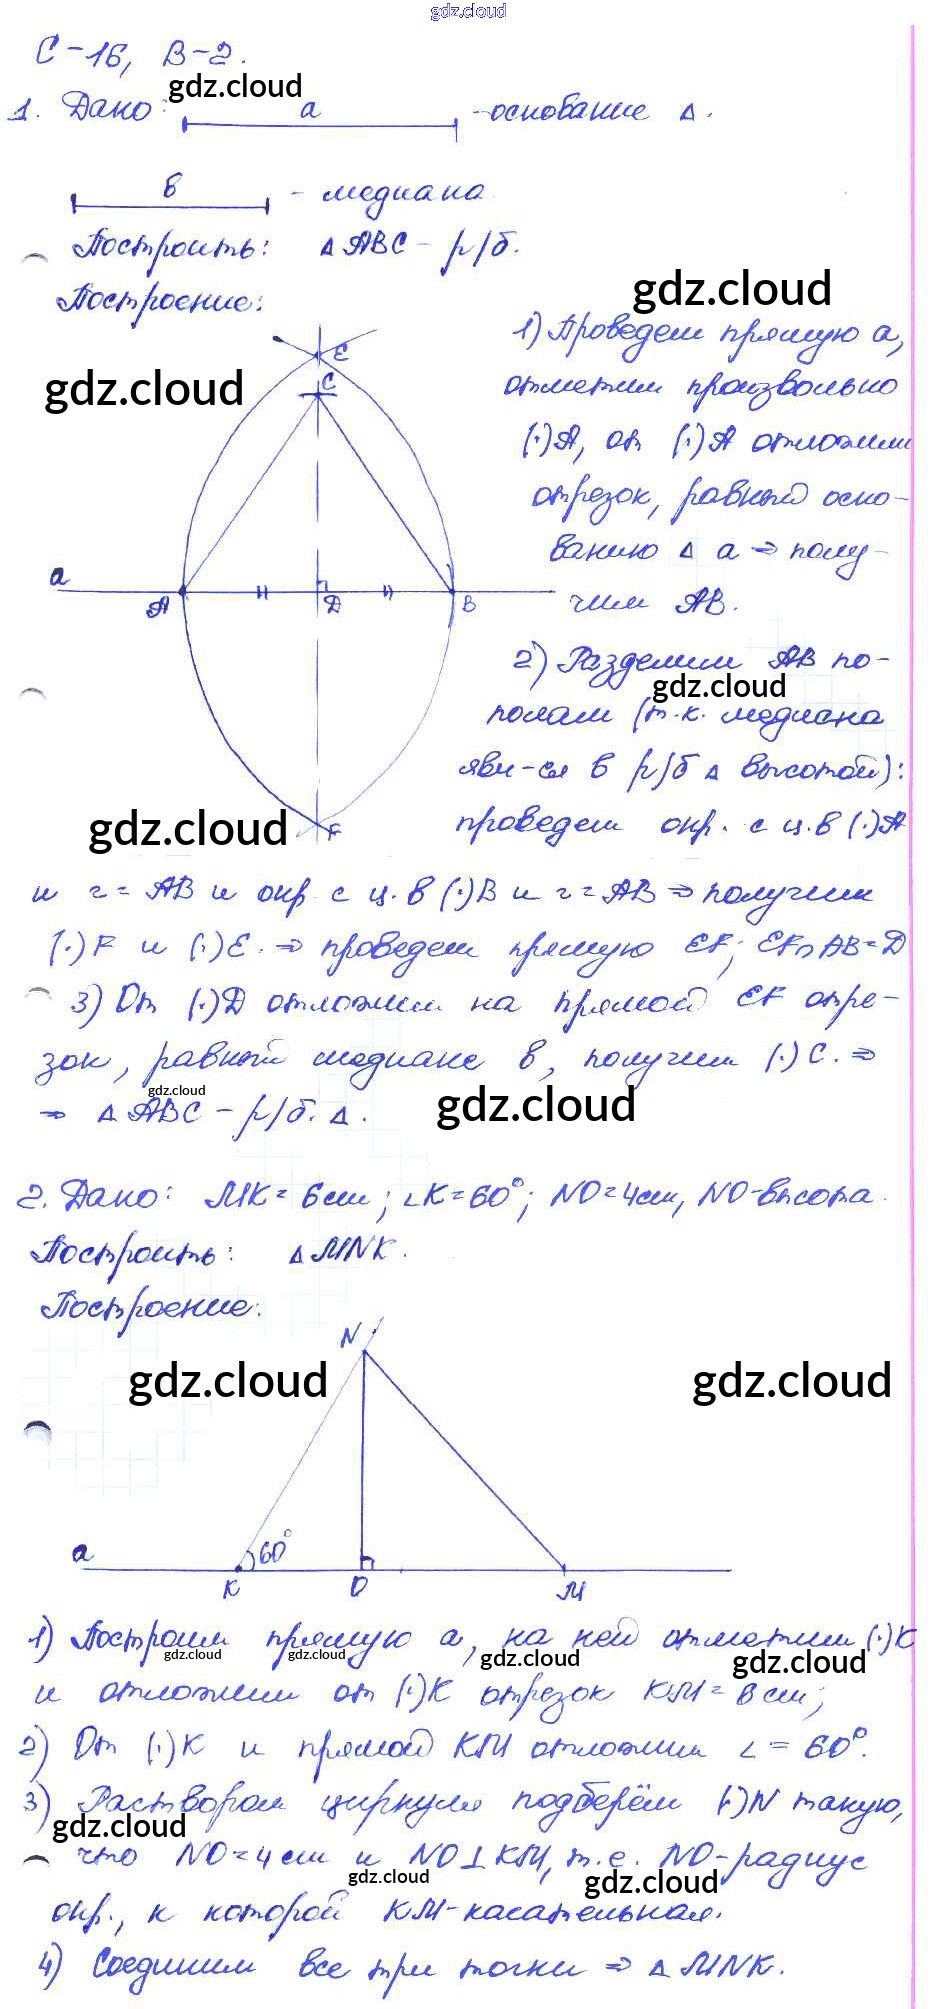 gdz.cloud
С-16, В-2.
gdz.cloud
1. Дано: a - основание Δ.
в - медиана
Построить: ΔABC - р/б.
Построение:
gdz.cloud
1) Проведем прямую a,
E
gdz.cloud
C
отметим произвольно
(·)A, от (·)A отложим
отрезок, равный осно-
ванию Δ a ⇒ полу-
a
A D B
чим AB.
2) Разделим AB по-
gdz.cloud
полам (т.к. медиана
яви-ся в р/б Δ высотой):
gdz.cloud
F
проведем окр. с ц. в (·)A
и r = AB и окр с ц. в (·)B и r = AB ⇒ получим
(·)F и (·)E. ⇒ проведем прямую EF; EF∩AB=D
3) От (·)D отложим на прямой EF отре-
зок, равный медиане в, получим (·)C. ⇒
gdz.cloud
gdz.cloud
⇒ ΔABC - р/б. Δ.
2. Дано: MK = 6см; ∠K = 60°; NO = 4см, NO-высота.
Построить: ΔMNK.
Построение:
N
gdz.cloud
gdz.cloud
a
60°
K O M
1) Построим прямую a, на ней отметим (·)K
gdz.cloud
gdz.cloud
gdz.cloud
gdz.cloud
и отложим от (·)K отрезок KM = 6см;
2) От (·)K и прямой KM отложим ∠ = 60°.
3) Раствором циркуля подберём (·)N такую,
gdz.cloud
что NO = 4см и NO⊥KM, т.е. NO-радиус
gdz.cloud
gdz.cloud
окр., к которой KM-касательная.
4) Соединим все три точки ⇒ ΔMNK.